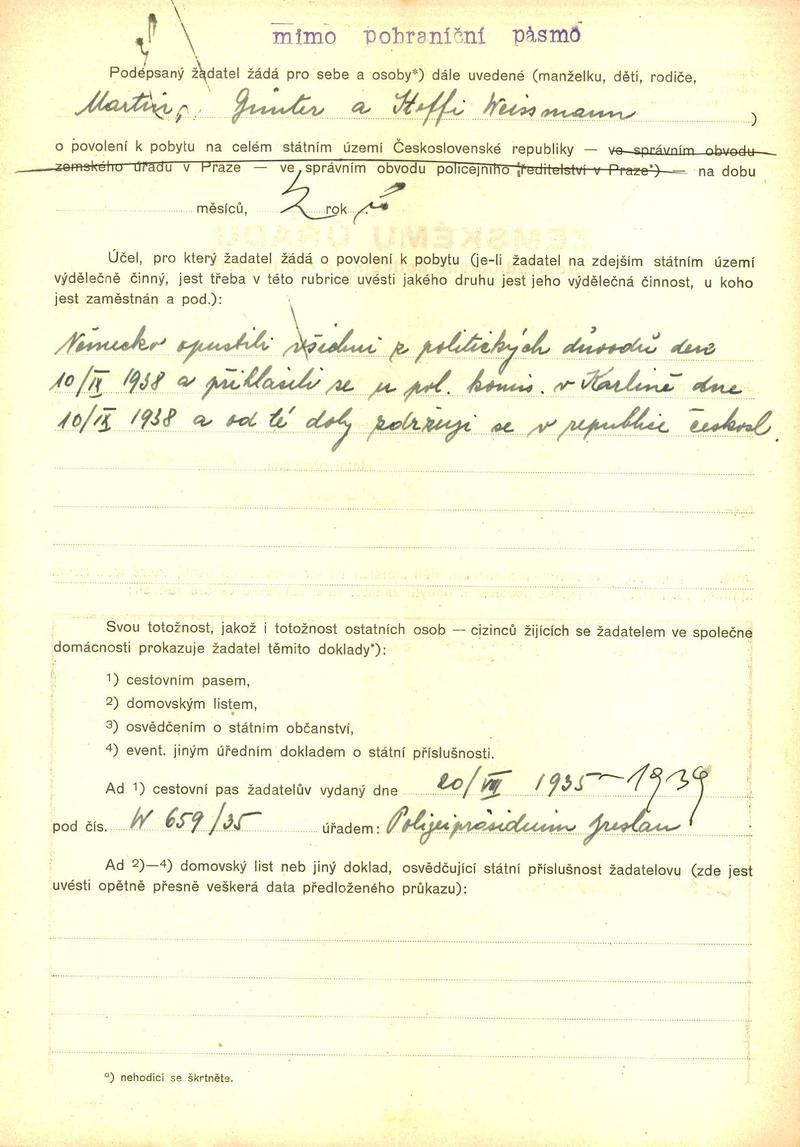 mimo pohraniční pásmo
Podepsaný žadatel žádá pro sebe a osoby*) dále uvedené (manželku, děti, rodiče,
Martin, Günter a Steffi Weissmann )
o povolení k pobytu na celém státním území Československé republiky — ve správním obvodu
zemského úřadu v Praze — ve správním obvodu policejního ředitelství v Praze*) — na dobu
měsíců, rok
Účel, pro který žadatel žádá o povolení k pobytu (je-li žadatel na zdejším státním území
výdělečně činný, jest třeba v této rubrice uvésti jakého druhu jest jeho výdělečná činnost, u koho
jest zaměstnán a pod.):
Německo opustili všichni z politických důvodů dne
10/IX 1938 a přihlásili se u pol. komis. v Karlíně dne
10/IX 1938 a od té doby zdržují se v republice českosl.
Svou totožnost, jakož i totožnost ostatních osob — cizinců žijících se žadatelem ve společné
domácnosti prokazuje žadatel těmito doklady*):
1) cestovním pasem,
2) domovským listem,
3) osvědčením o státním občanství,
4) event. jiným úředním dokladem o státní příslušnosti.
Ad 1) cestovní pas žadatelův vydaný dne 20/VIII 1935 – 1939
pod čís. W 659/35 úřadem: Polizeipräsidium Breslau
Ad 2)—4) domovský list neb jiný doklad, osvědčující státní příslušnost žadatelovu (zde jest
uvésti opětně přesně veškerá data předloženého průkazu):
*) nehodící se škrtněte.